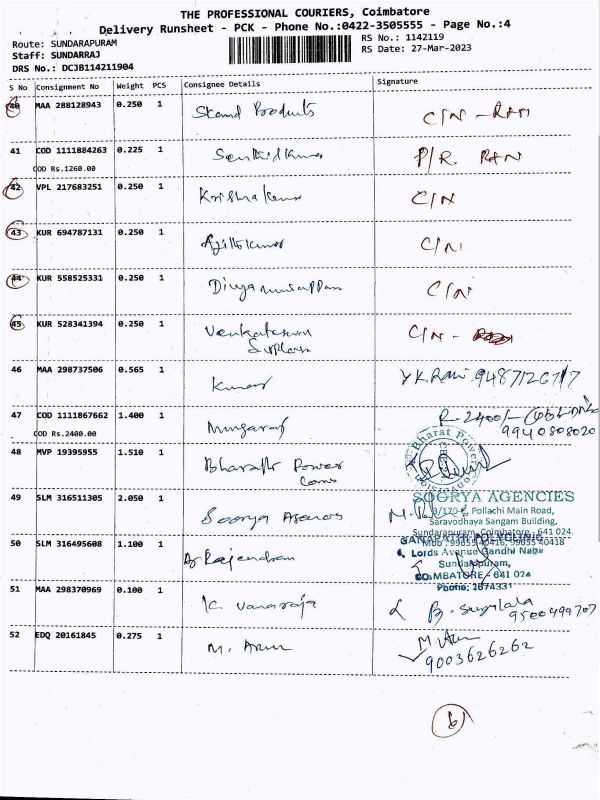 THE PROFESSIONAL COURIERS, Coimbatore
Delivery Runsheet - PCK - Phone No.:0422-3505555 - Page No.:4
Route: SUNDARAPURAM
Staff: SUNDARRAJ
DRS No.: DCJB114211904
RS No.: 1142119
RS Date: 27-Mar-2023
S No Consignment No Weight PCS Consignee Details Signature
40 MAA 288128943 0.250 1 Skand Products C/N - RAM
41 COD 1111884263 0.225 1 Senthilkumar P/R.
COD Rs.1260.00
42 VPL 217683251 0.250 1 Krishnakumar C/N
43 KUR 694787131 0.250 1 Ajithkumar C/N
44 KUR 558525331 0.250 1 C/N
45 KUR 528341394 0.250 1 Venkateswara C/N -
46 MAA 298737506 0.565 1 Kumar Y K. Rani
47 COD 1111867662 1.400 1 Murugaraj R. 2400/-
COD Rs.2400.00 9940808020
48 MVP 19395955 1.510 1 Bharath Power Bharat Power
49 SLM 316511305 2.050 1 Soorya Agencies SOORYA AGENCIES
Pollachi Main Road,
Saravodhaya Sangam Building,
Sundarapuram, Coimbatore - 641 024.
50 SLM 316495608 1.100 1 Dr Rajendran GANAPATHI POLYCLINIC
Lords Avenue Gandhi Nagar
Sundarapuram,
COIMBATORE - 641 024
Phone: 2674331
51 MAA 298370969 0.100 1 K. Vanaraja 9500499707
52 EDQ 20161845 0.275 1 M. Arun M. Arun
9003626262
6